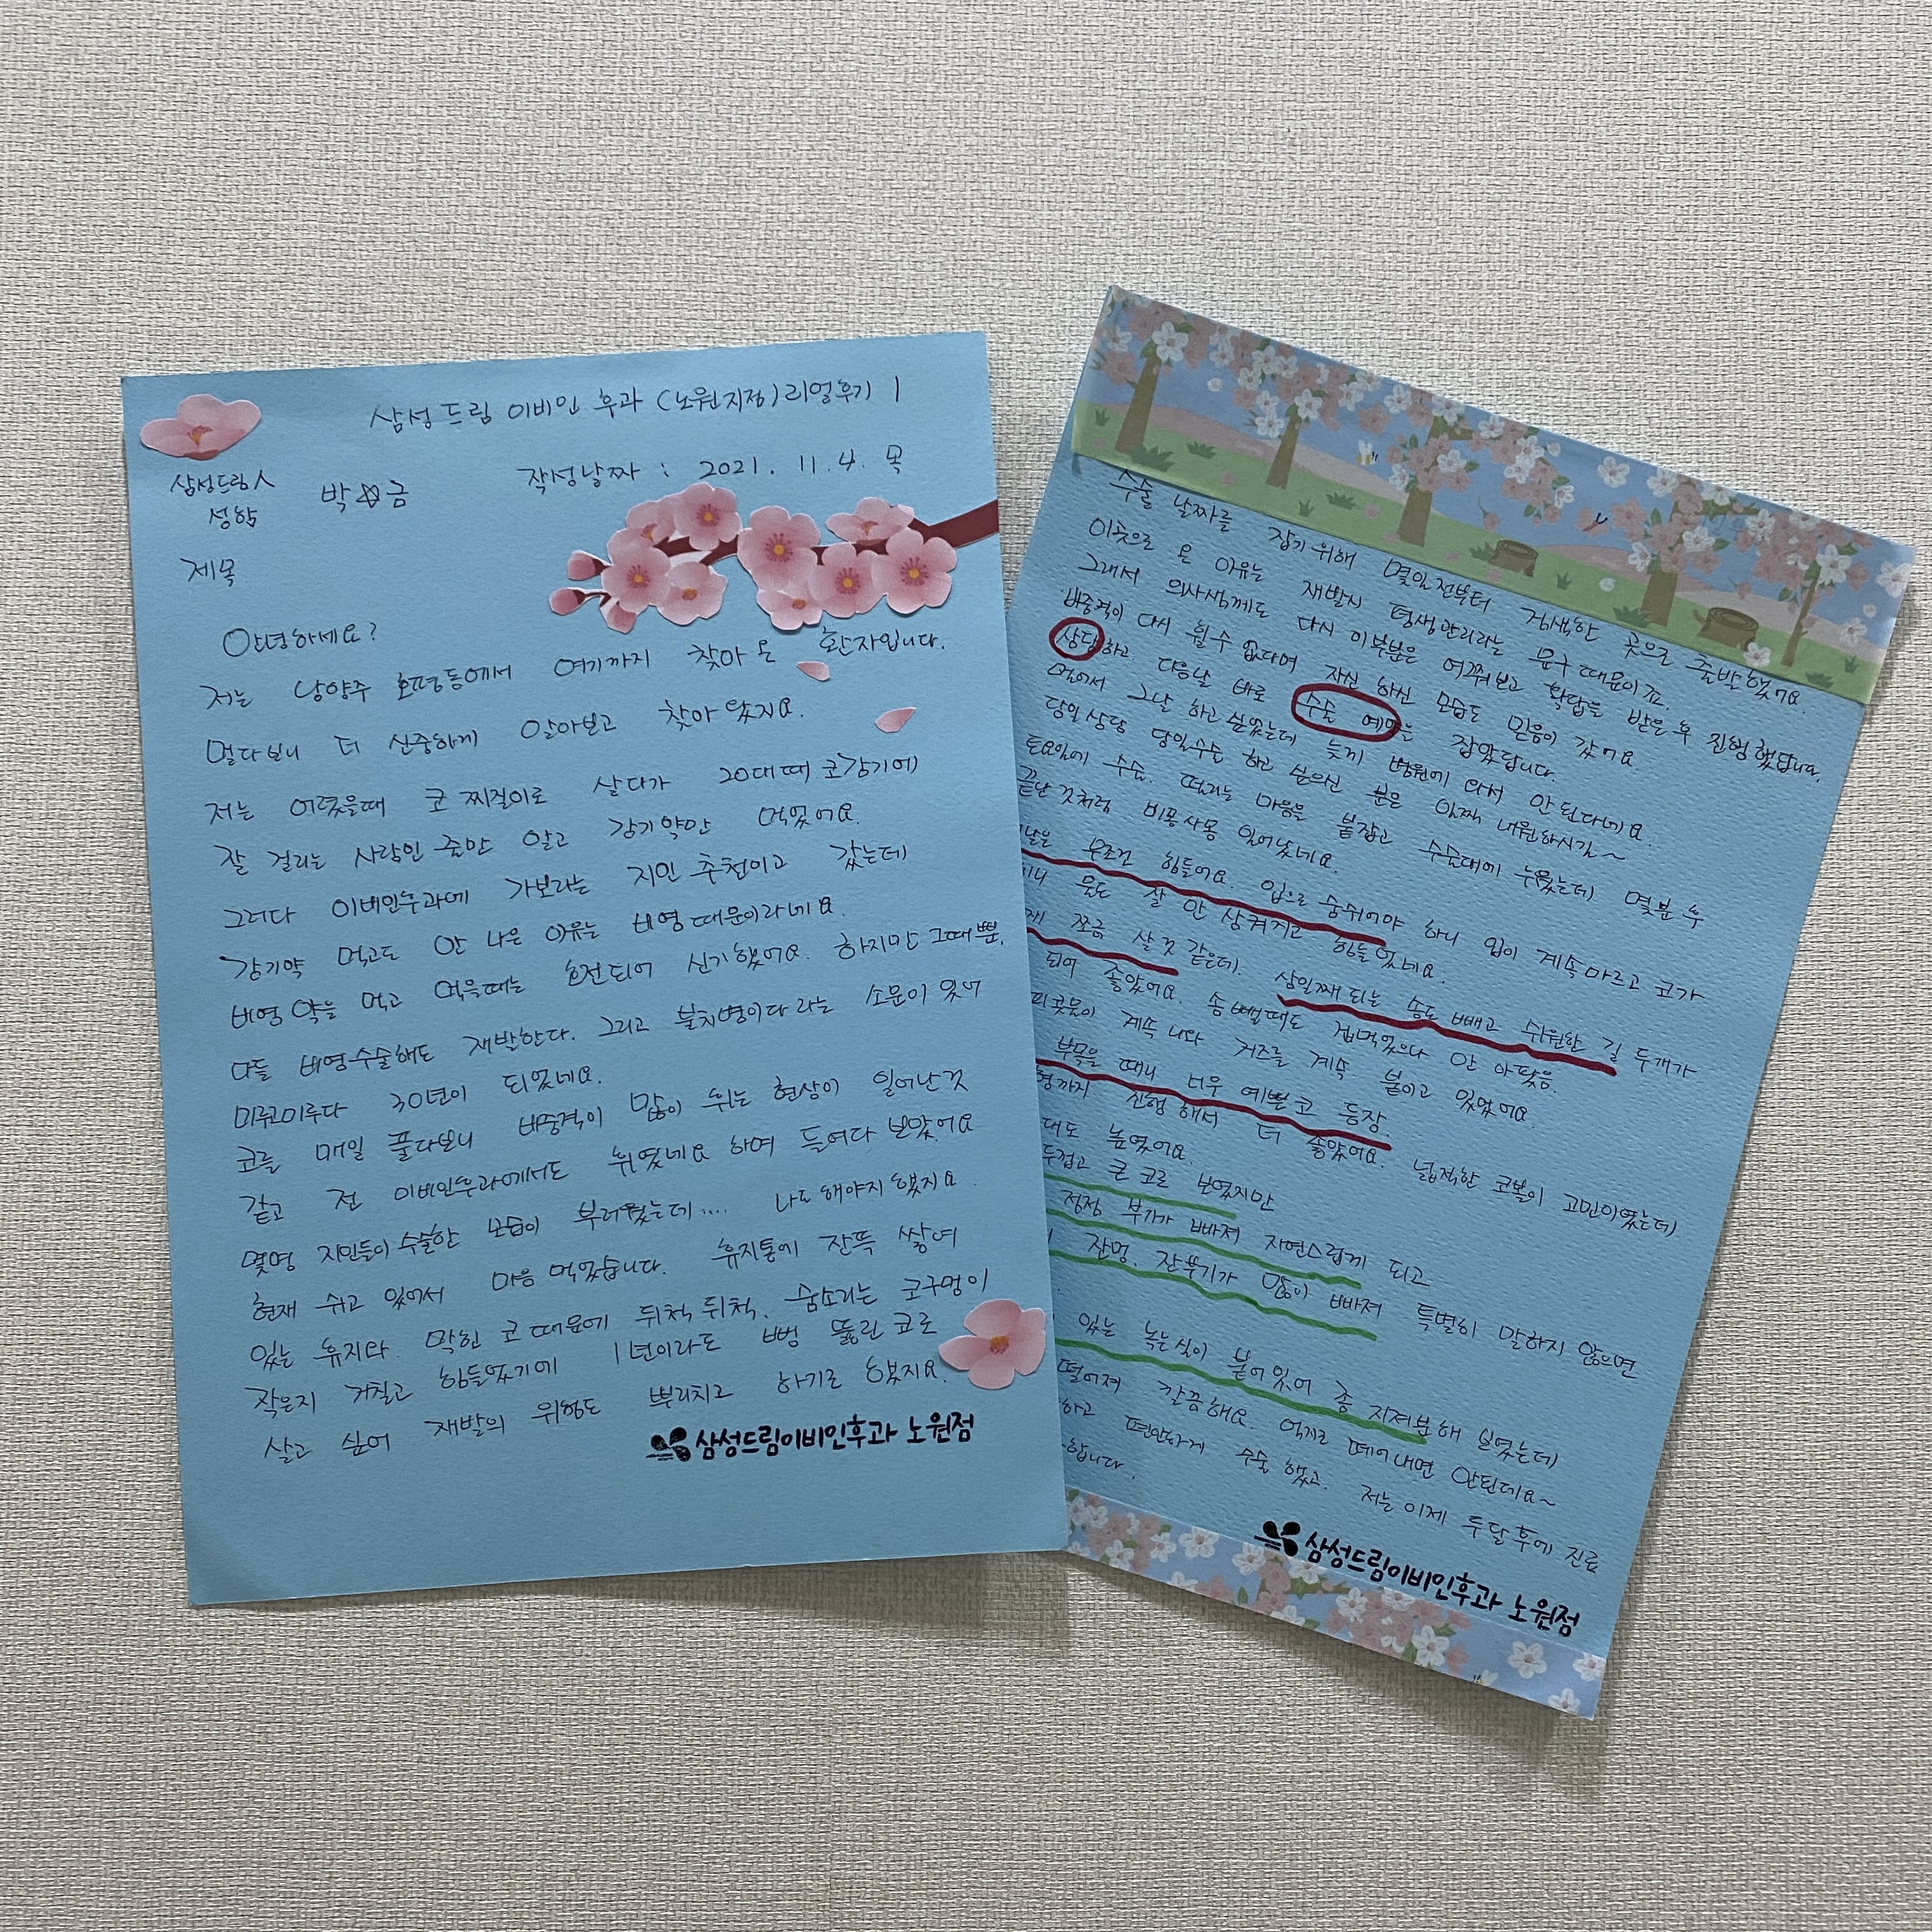 삼성드림 이비인 후과 (노원지점) 리얼후기 1
삼성드림人
성함
박☆금
작성날짜 : 2021. 11. 4. 목
제목
안녕하세요?
저는 남양주 호평동에서 여기까지 찾아 온 환자입니다.
멀다보니 더 신중하게 알아보고 찾아 왔지요.
저는 어렸을때 코 찌걱이로 살다가 20대때 코감기에
잘 걸리는 사람인 줄만 알고 감기약만 먹었어요.
그러다 이비인후과에 가보라는 지인 추천이고 갔는데
감기약 먹고도 안 나은 이유는 비염 때문이라네요.
비염약을 먹고 먹을때는 호전되어 신기했어요. 하지만 그때뿐.
다들 비염수술해도 재발한다. 그리고 불치병이다 라는 소문이 있어
미루고미루다 30년이 되었네요.
코를 매일 풀다보니 비중격이 많이 휘는 현상이 일어난것
같고 전 이비인후과에서도 휘었네요 하며 들여다 보았어요
몇명 지인들이 수술한 모습이 부러웠는데.... 나도 해야지 했지요.
현재 쉬고 있어서 마음 먹었습니다. 휴지통에 잔뜩 쌓여
있는 휴지와 막힌 코 때문에 뒤척 뒤척. 숨소리는 코구멍이
작은지 거칠고 힘들었기에 1년이라도 뻥 뚫린 코로
살고 싶어 재발의 위험도 뿌리치고 하기로 했지요.
삼성드림이비인후과 노원점
수술 날짜를 잡기 위해 몇일전부터 검색한 곳으로 출발했어요
이곳으로 온 이유는 재발시 평생관리라는 문구 때문이죠.
그래서 의사샘께도 다시 이부분은 여쭤보고 확답을 받은 후 진행했답니다.
비중격이 다시 휠수 없다며 자신 하신 모습도 믿음이 갔어요
상담하고 다음날 바로 수술 예약을 잡았답니다.
멀어서 그날 하고 싶었는데 늦게 병원에 와서 안 된다네요.
당일 상담 당일수술 하고 싶으신 분은 일찍 내원하시길~
토요일에 수술. 떨리는 마음을 붙잡고 수술대에 누웠는데 몇분 후
끝난것처럼 비몽사몽 일어났네요.
날은 무조건 힘들어요. 입으로 숨쉬어야 하니 입이 계속마르고 코가
물도 잘 안 삼켜지고 힘들었네요.
쪼금 살것 같은데. 삼일째 되는 솜도 빼고 쉬원한 길 두개가
되어 좋았어요. 솜 뺄때도 겁먹었으나 안 아팠음.
피콧물이 계속 나와 거즈를 계속 붙이고 있었어요.
부목을 떼니 너무 예쁜코 등장.
까지 진행 해서 더 좋았어요. 넓적한 코볼이 고민이었는데
대도 높였어요.
두껍고 큰 코로 보였지만
점점 부기가 빠져 자연스럽게 되고
잔멍. 잔붓기가 많이 빠져 특별히 말하지 않으면
있는 녹는실이 붙어있어 좀 지저분해 보였는데
떨어져 깔끔해요. 억지로 떼어내면 안된데요~
하고 편안하게 수술 했고. 저는 이제 두달후에 진료
합니다.
삼성드림이비인후과 노원점